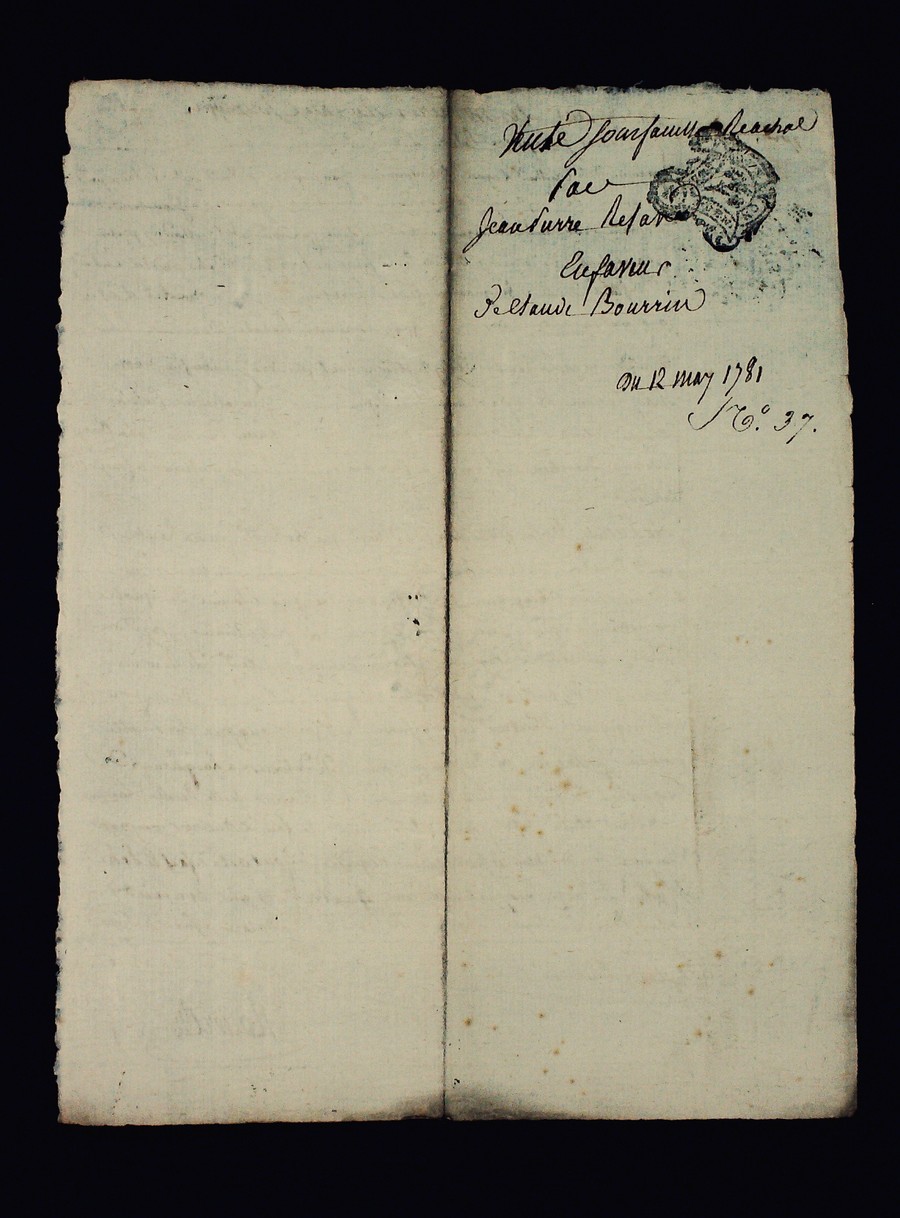 Vente sous faculté Reachat
Par
Jean Pierre
En faveur
De Claude Bourrin
Du 12 may 1781
N.º 37.